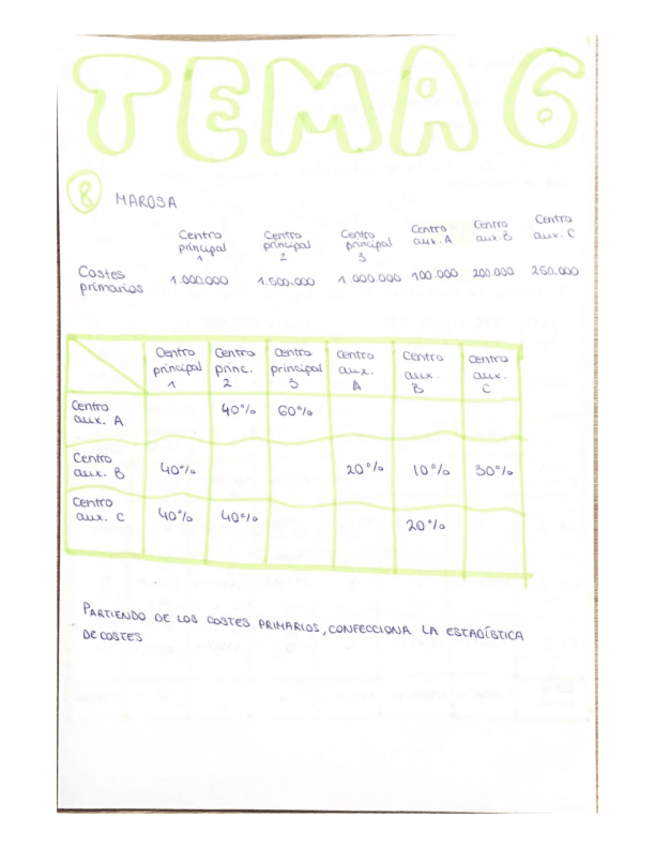 TEMA 6
8 MAROSA
Centro principal 1 Centro principal 2 Centro principal 3 Centro aux. A Centro aux. B Centro aux. C
Costes primarios 1.000.000 1.500.000 1.000.000 100.000 200.000 250.000
Centro principal 1 Centro princ. 2 Centro principal 3 Centro aux. A Centro aux. B Centro aux. C
Centro aux. A 40% 60%
Centro aux. B 40% 20% 10% 30%
Centro aux. C 40% 40% 20%
PARTIENDO DE LOS COSTES PRIMARIOS, CONFECCIONA LA ESTADÍSTICA
DE COSTES